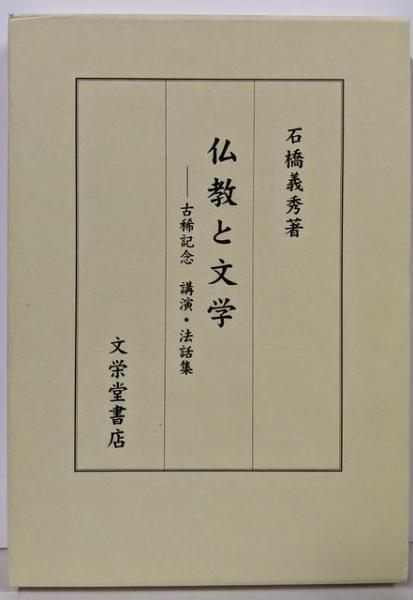 石橋義秀著
仏教と文学
──古稀記念　講演・法話集
文栄堂書店